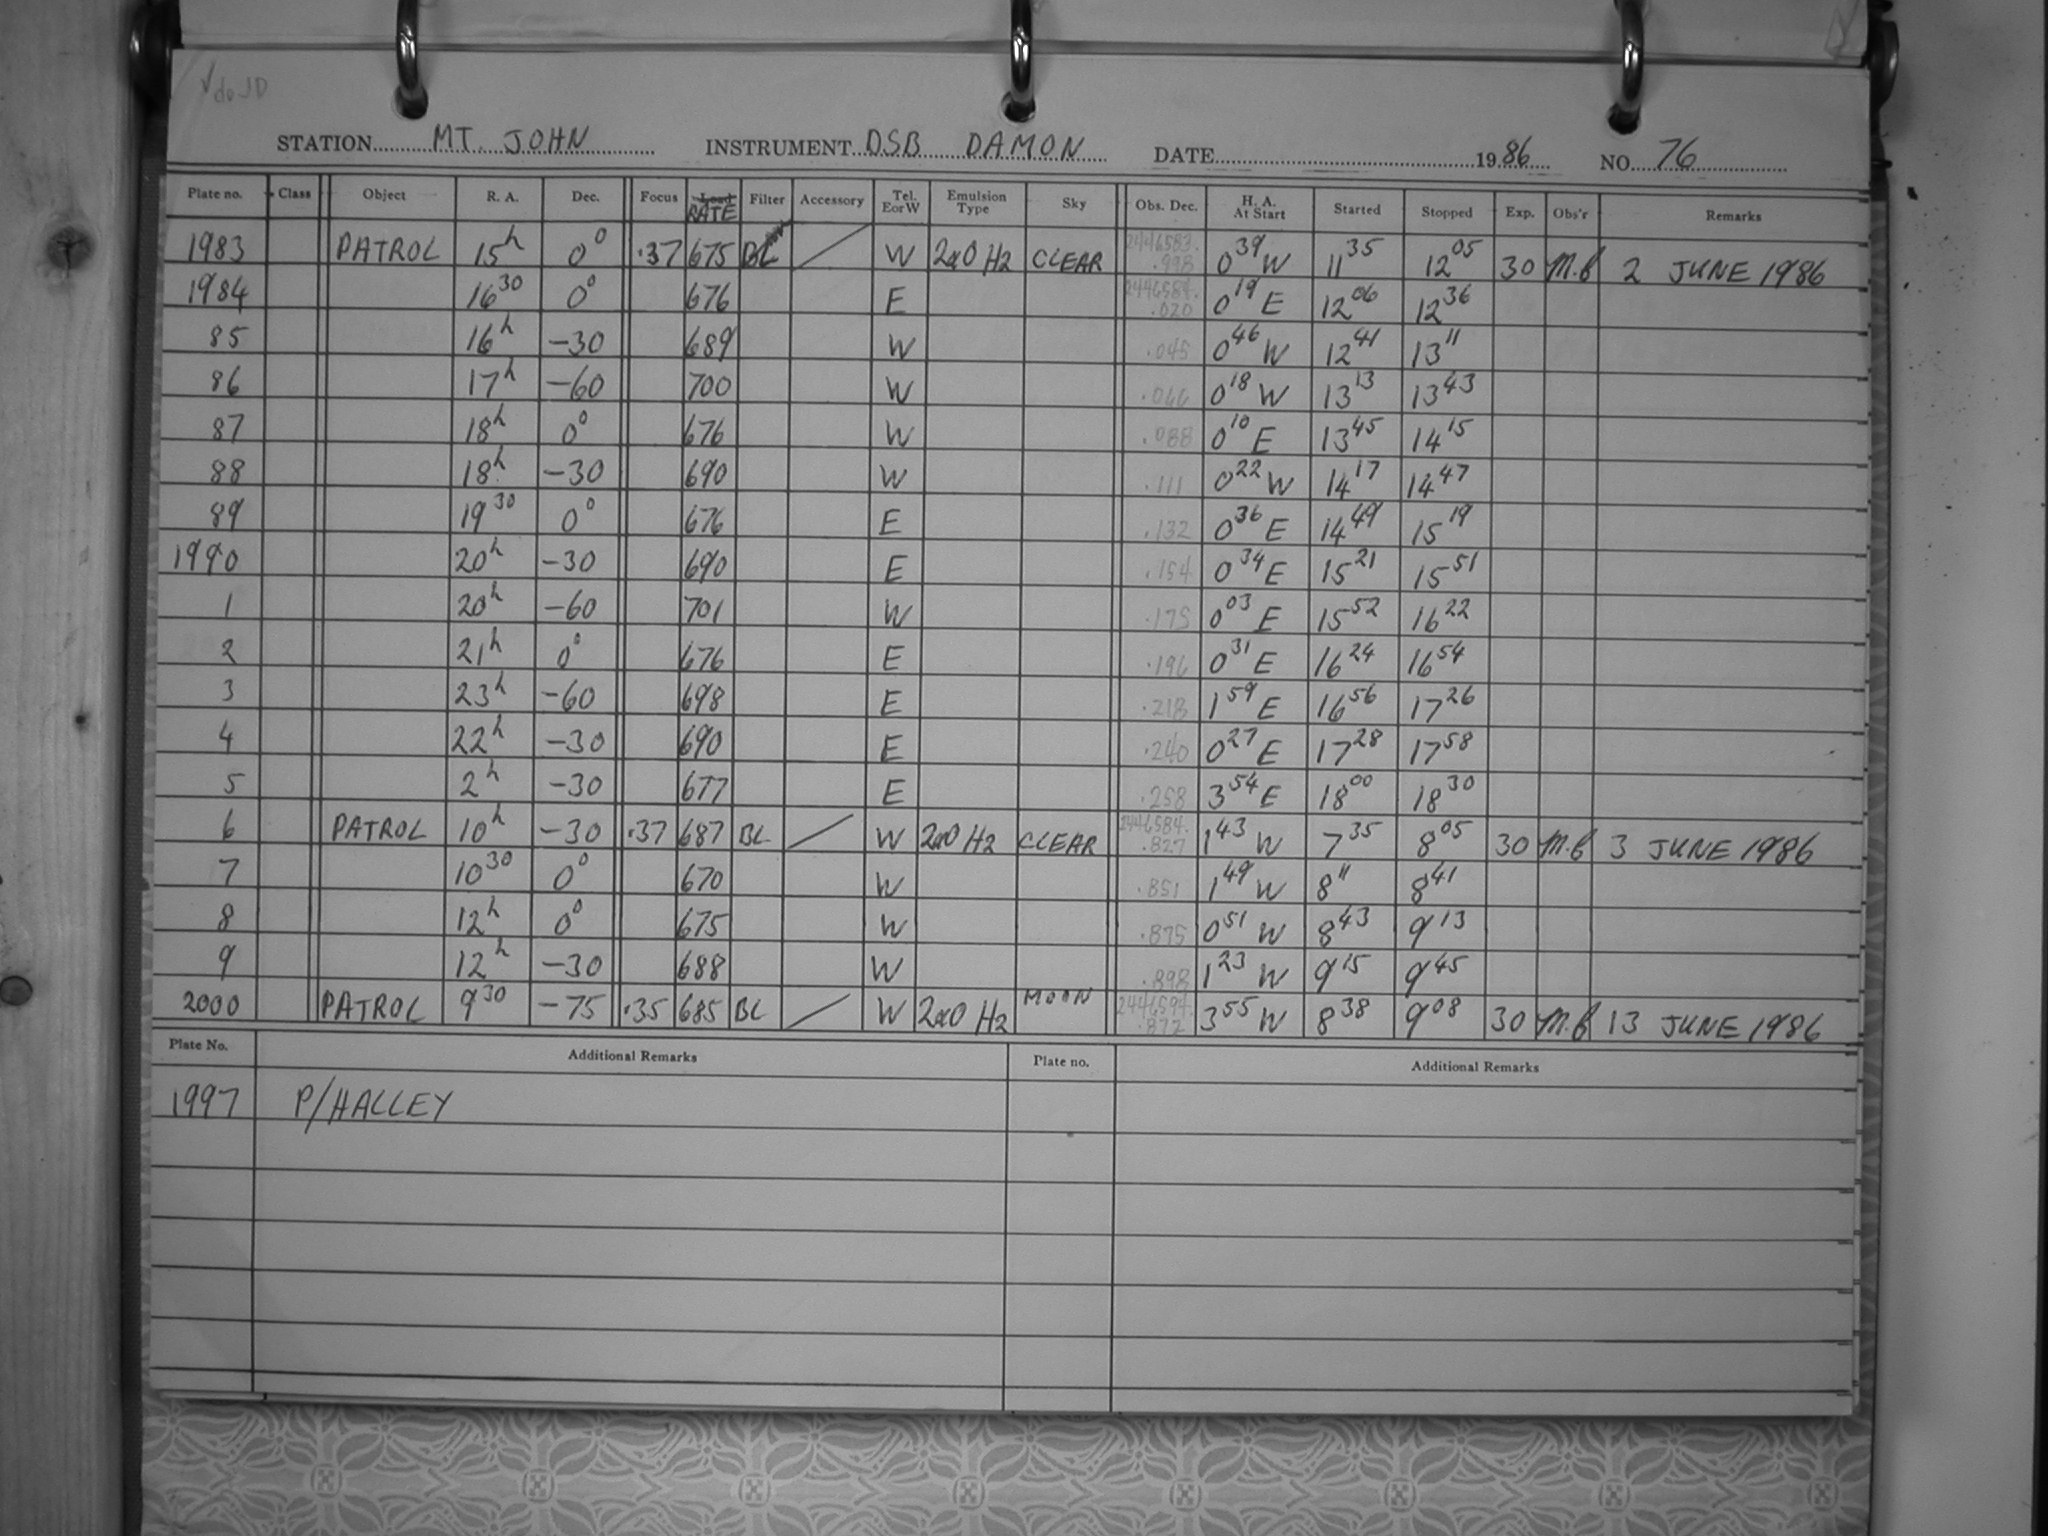 √ do JD
STATION MT. JOHN INSTRUMENT DSB DAMON DATE 1986 NO. 76
Plate no. Class Object R. A. Dec. Focus Load RATE Filter Accessory Tel. E or W Emulsion Type Sky Obs. Dec. H. A. At Start Started Stopped Exp. Obs'r Remarks
1983 PATROL 15h 0° .37 675 BL / W 2a0 H2 CLEAR 2446583.998 0 39 W 11 35 12 05 30 M.B 2 JUNE 1986
1984 16 30 0° 676 E 2446584.020 0 19 E 12 06 12 36
85 16h -30 689 W .045 0 46 W 12 41 13 11
86 17h -60 700 W .066 0 18 W 13 13 13 43
87 18h 0° 676 W .088 0 10 E 13 45 14 15
88 18h -30 690 W .111 0 22 W 14 17 14 47
89 19 30 0° 676 E .132 0 36 E 14 49 15 19
1990 20h -30 690 E .154 0 34 E 15 21 15 51
1 20h -60 701 W .175 0 03 E 15 52 16 22
2 21h 0° 676 E .196 0 31 E 16 24 16 54
3 23h -60 698 E .218 1 59 E 16 56 17 26
4 22h -30 690 E .240 0 27 E 17 28 17 58
5 2h -30 677 E .258 3 54 E 18 00 18 30
6 PATROL 10h -30 .37 687 BL / W 2a0 H2 CLEAR 2446584.827 1 43 W 7 35 8 05 30 M.B 3 JUNE 1986
7 10 30 0° 670 W .851 1 49 W 8 11 8 41
8 12h 0° 675 W .875 0 51 W 8 43 9 13
9 12h -30 688 W .898 1 23 W 9 15 9 45
2000 PATROL 9 30 -75 .35 685 BL / W 2a0 H2 MOON 2446594.872 3 55 W 8 38 9 08 30 M.B 13 JUNE 1986
Plate No. Additional Remarks Plate no. Additional Remarks
1997 P/HALLEY